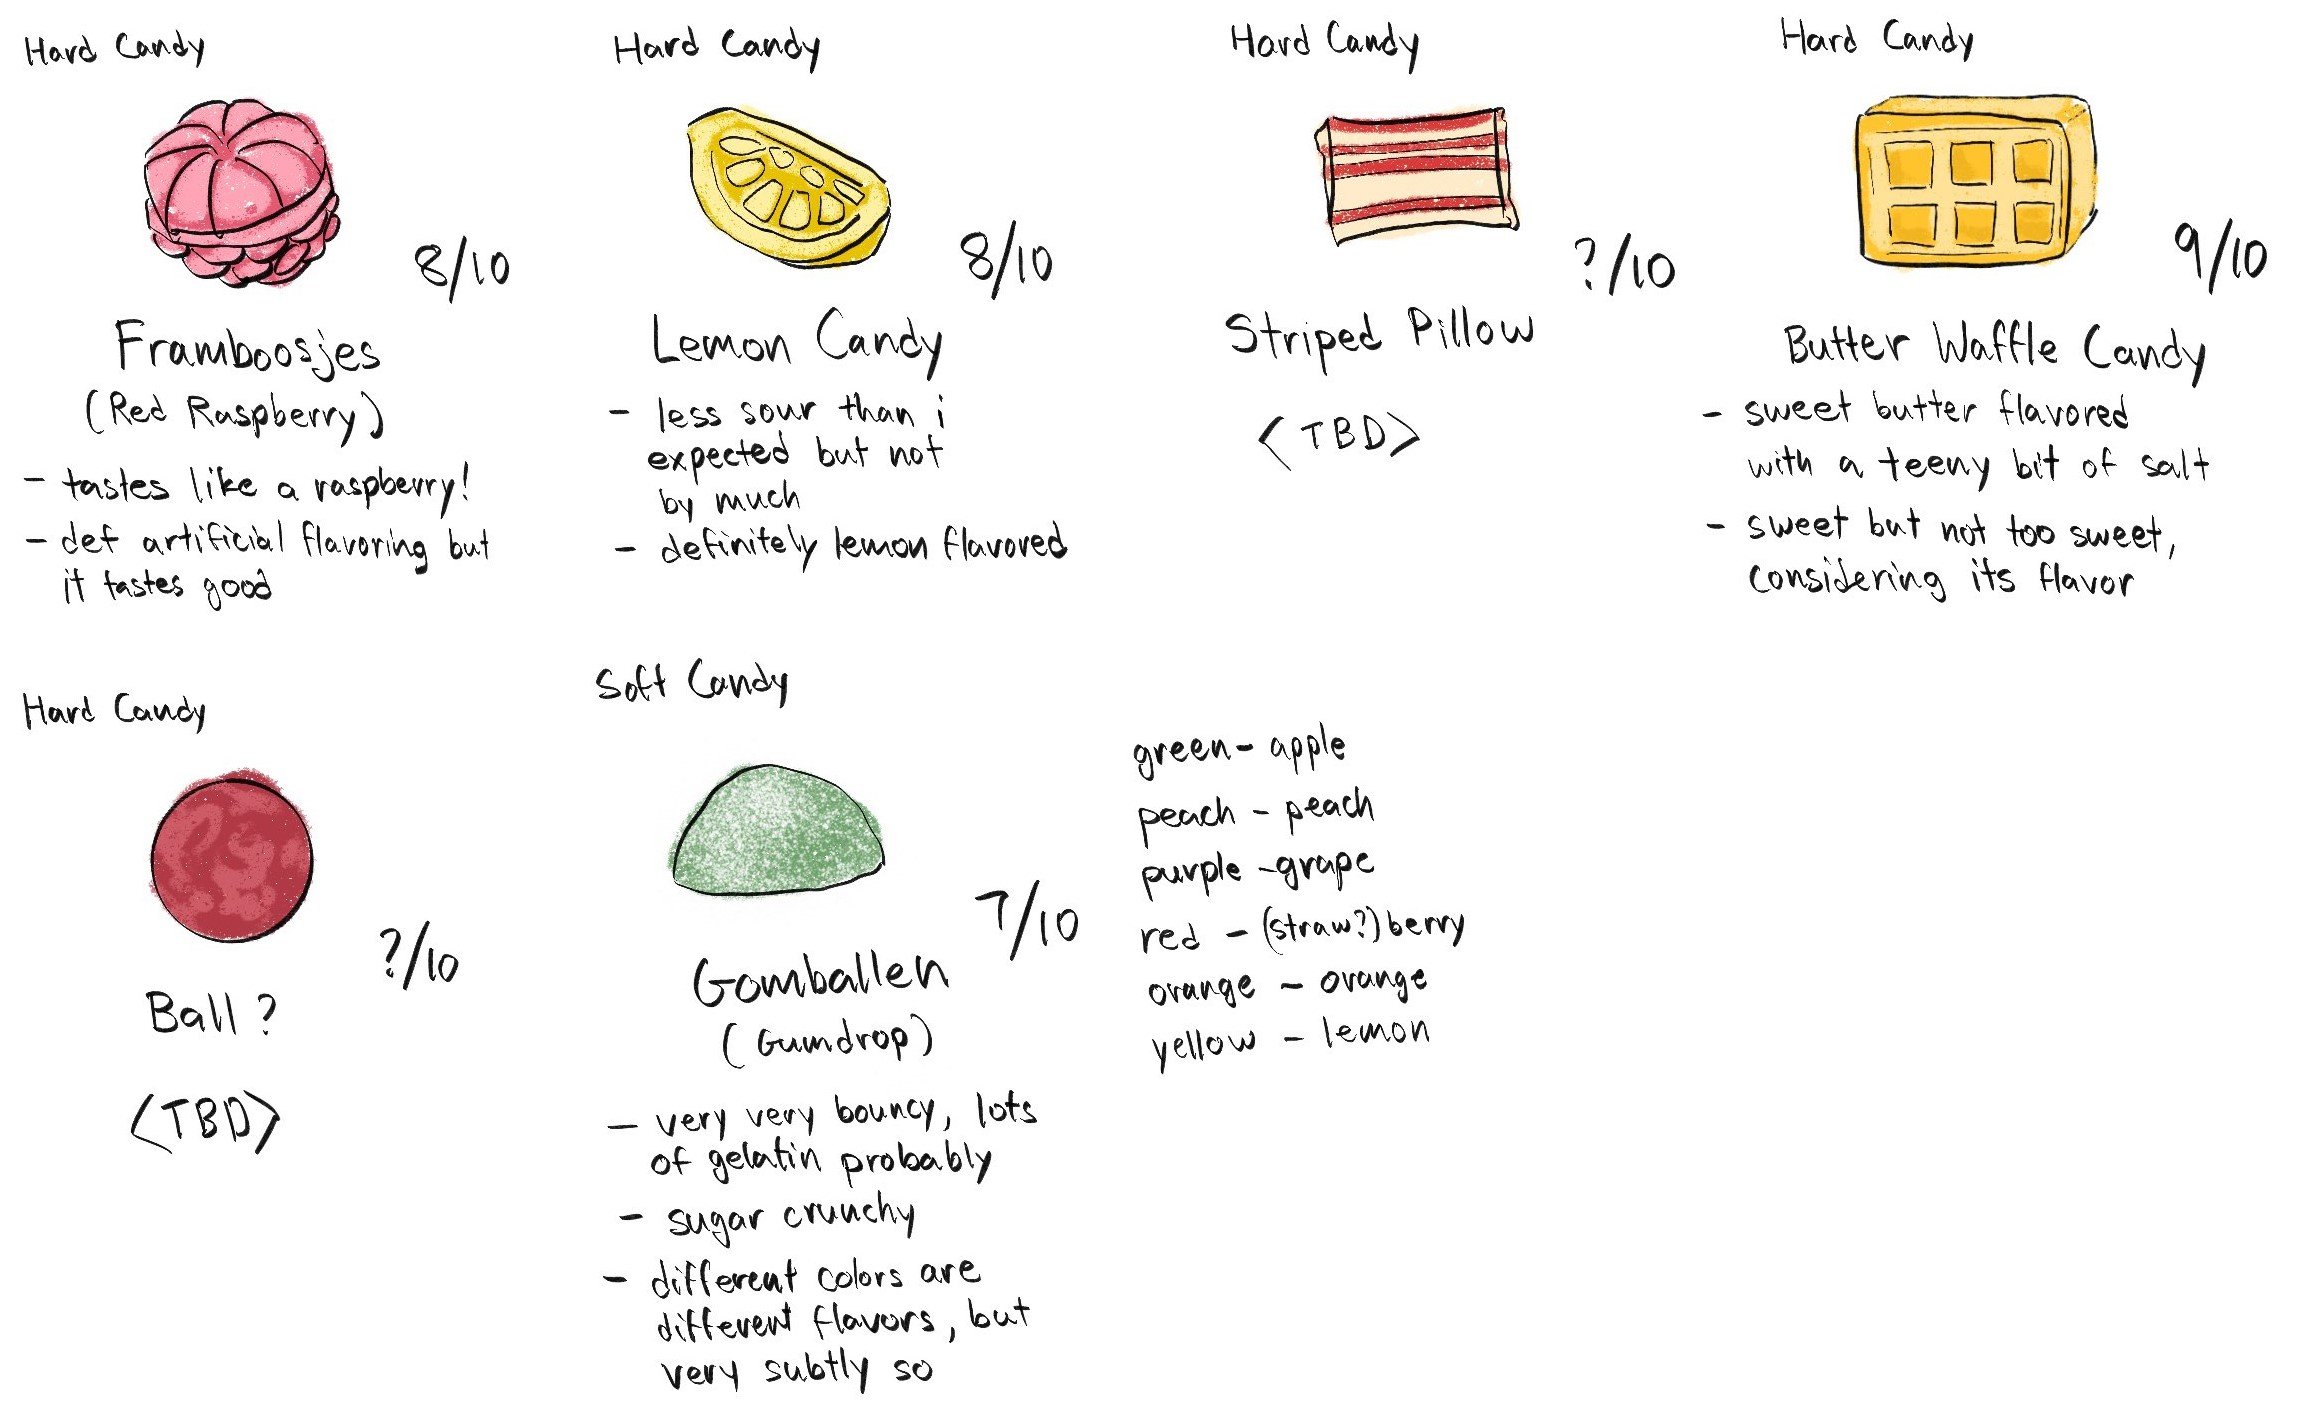 Hard Candy
8/10
Framboosjes
(Red Raspberry)
- tastes like a raspberry!
- def artificial flavoring but
it tastes good
Hard Candy
8/10
Lemon Candy
- less sour than i
expected but not
by much
- definitely lemon flavored
Hard Candy
?/10
Striped Pillow
<TBD>
Hard Candy
9/10
Butter Waffle Candy
- sweet butter flavored
with a teeny bit of salt
- sweet but not too sweet,
considering its flavor
Hard Candy
?/10
Ball?
<TBD>
Soft Candy
7/10
Gomballen
(Gumdrop)
- very very bouncy, lots
of gelatin probably
- sugar crunchy
- different colors are
different flavors, but
very subtly so
green - apple
peach - peach
purple - grape
red - (straw?)berry
orange - orange
yellow - lemon